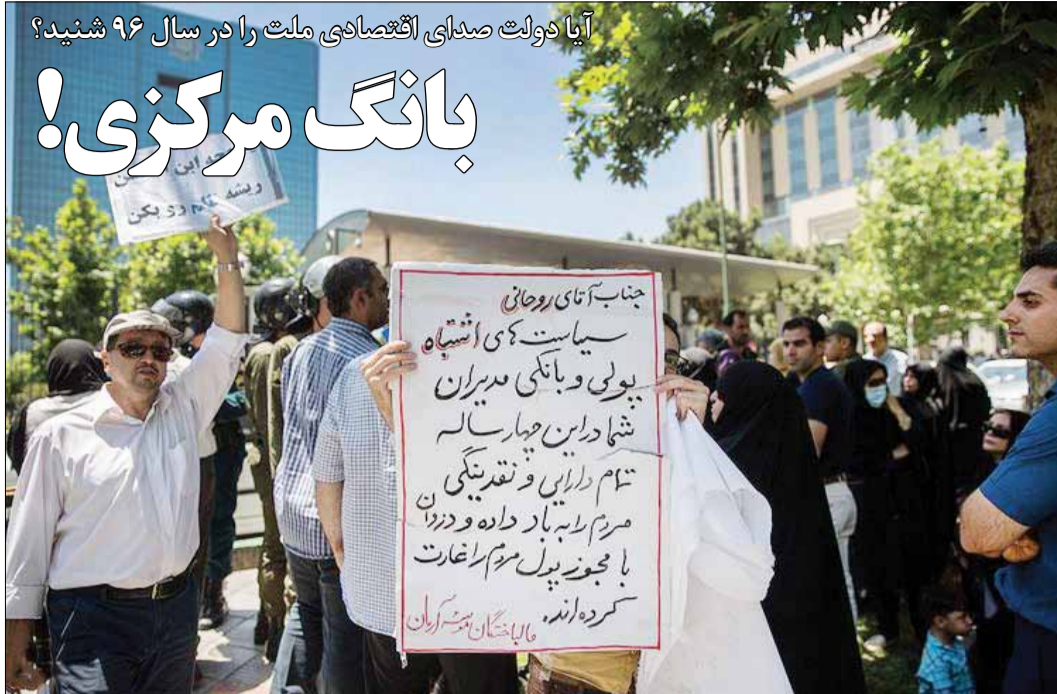 آیا دولت صدای اقتصادی ملت را در سال ۹۶ شنید؟
بانگ مرکزی!
این
ریشه رو بکن
جناب آقای روحانی
سیاست های اشتباه
پولی و بانکی مدیران
شما دراین چهارساله
تمام دارایی و نقدینگی
مردم را به باد داده و دزدان
با مجوز پول مردم را غارت
کرده اند.
مالباختگان آرمان